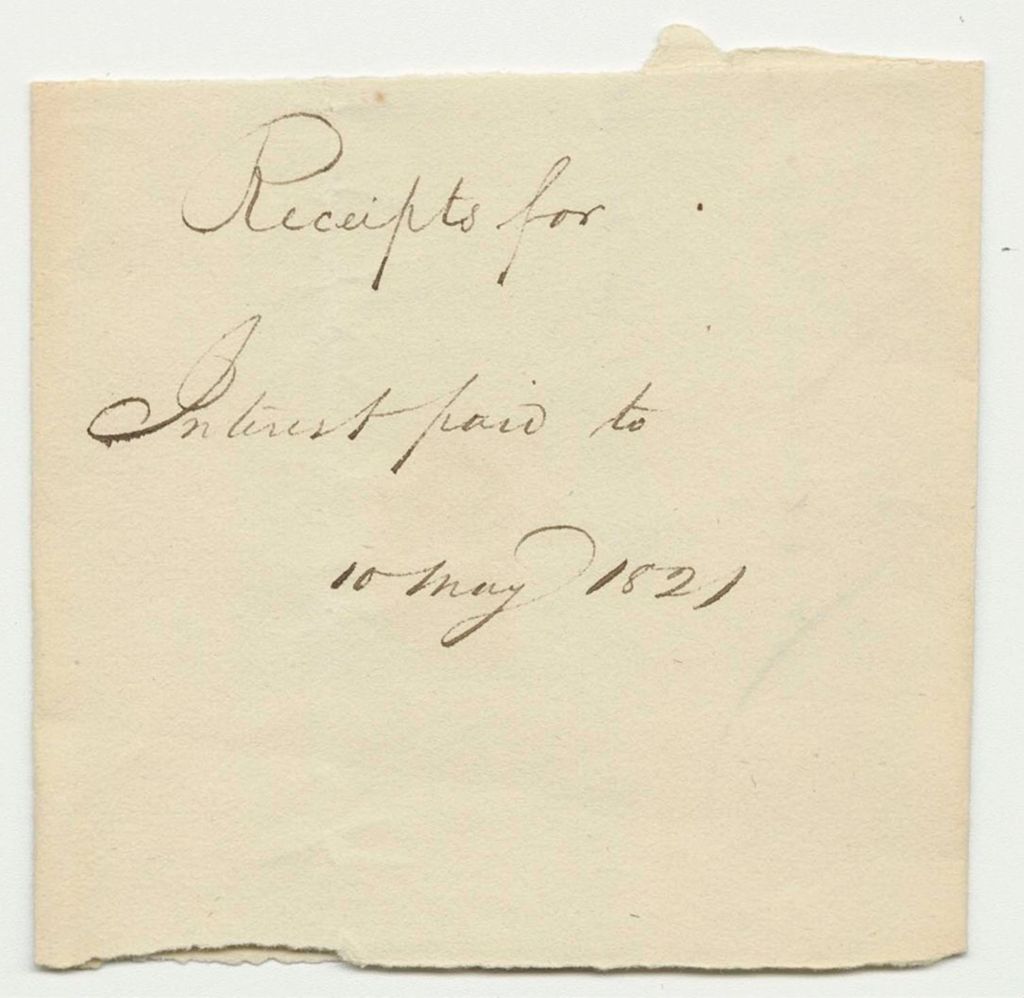 Receipts for
Interest paid to
10 May 1821